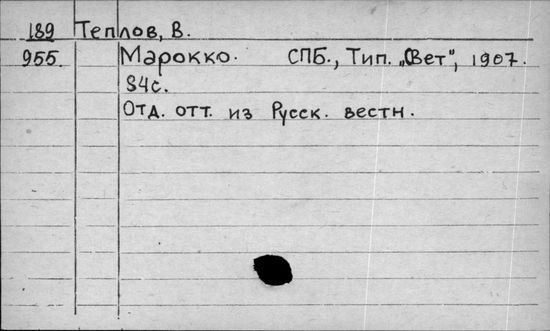 189 Теплов, В.
955. Марокко. СПБ., Тип. „Свет", 1907.
84с.
Отд. отт. из Русск. вестн.